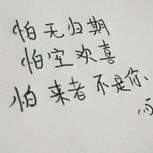 怕无归期
怕空欢喜
怕来者不是你、